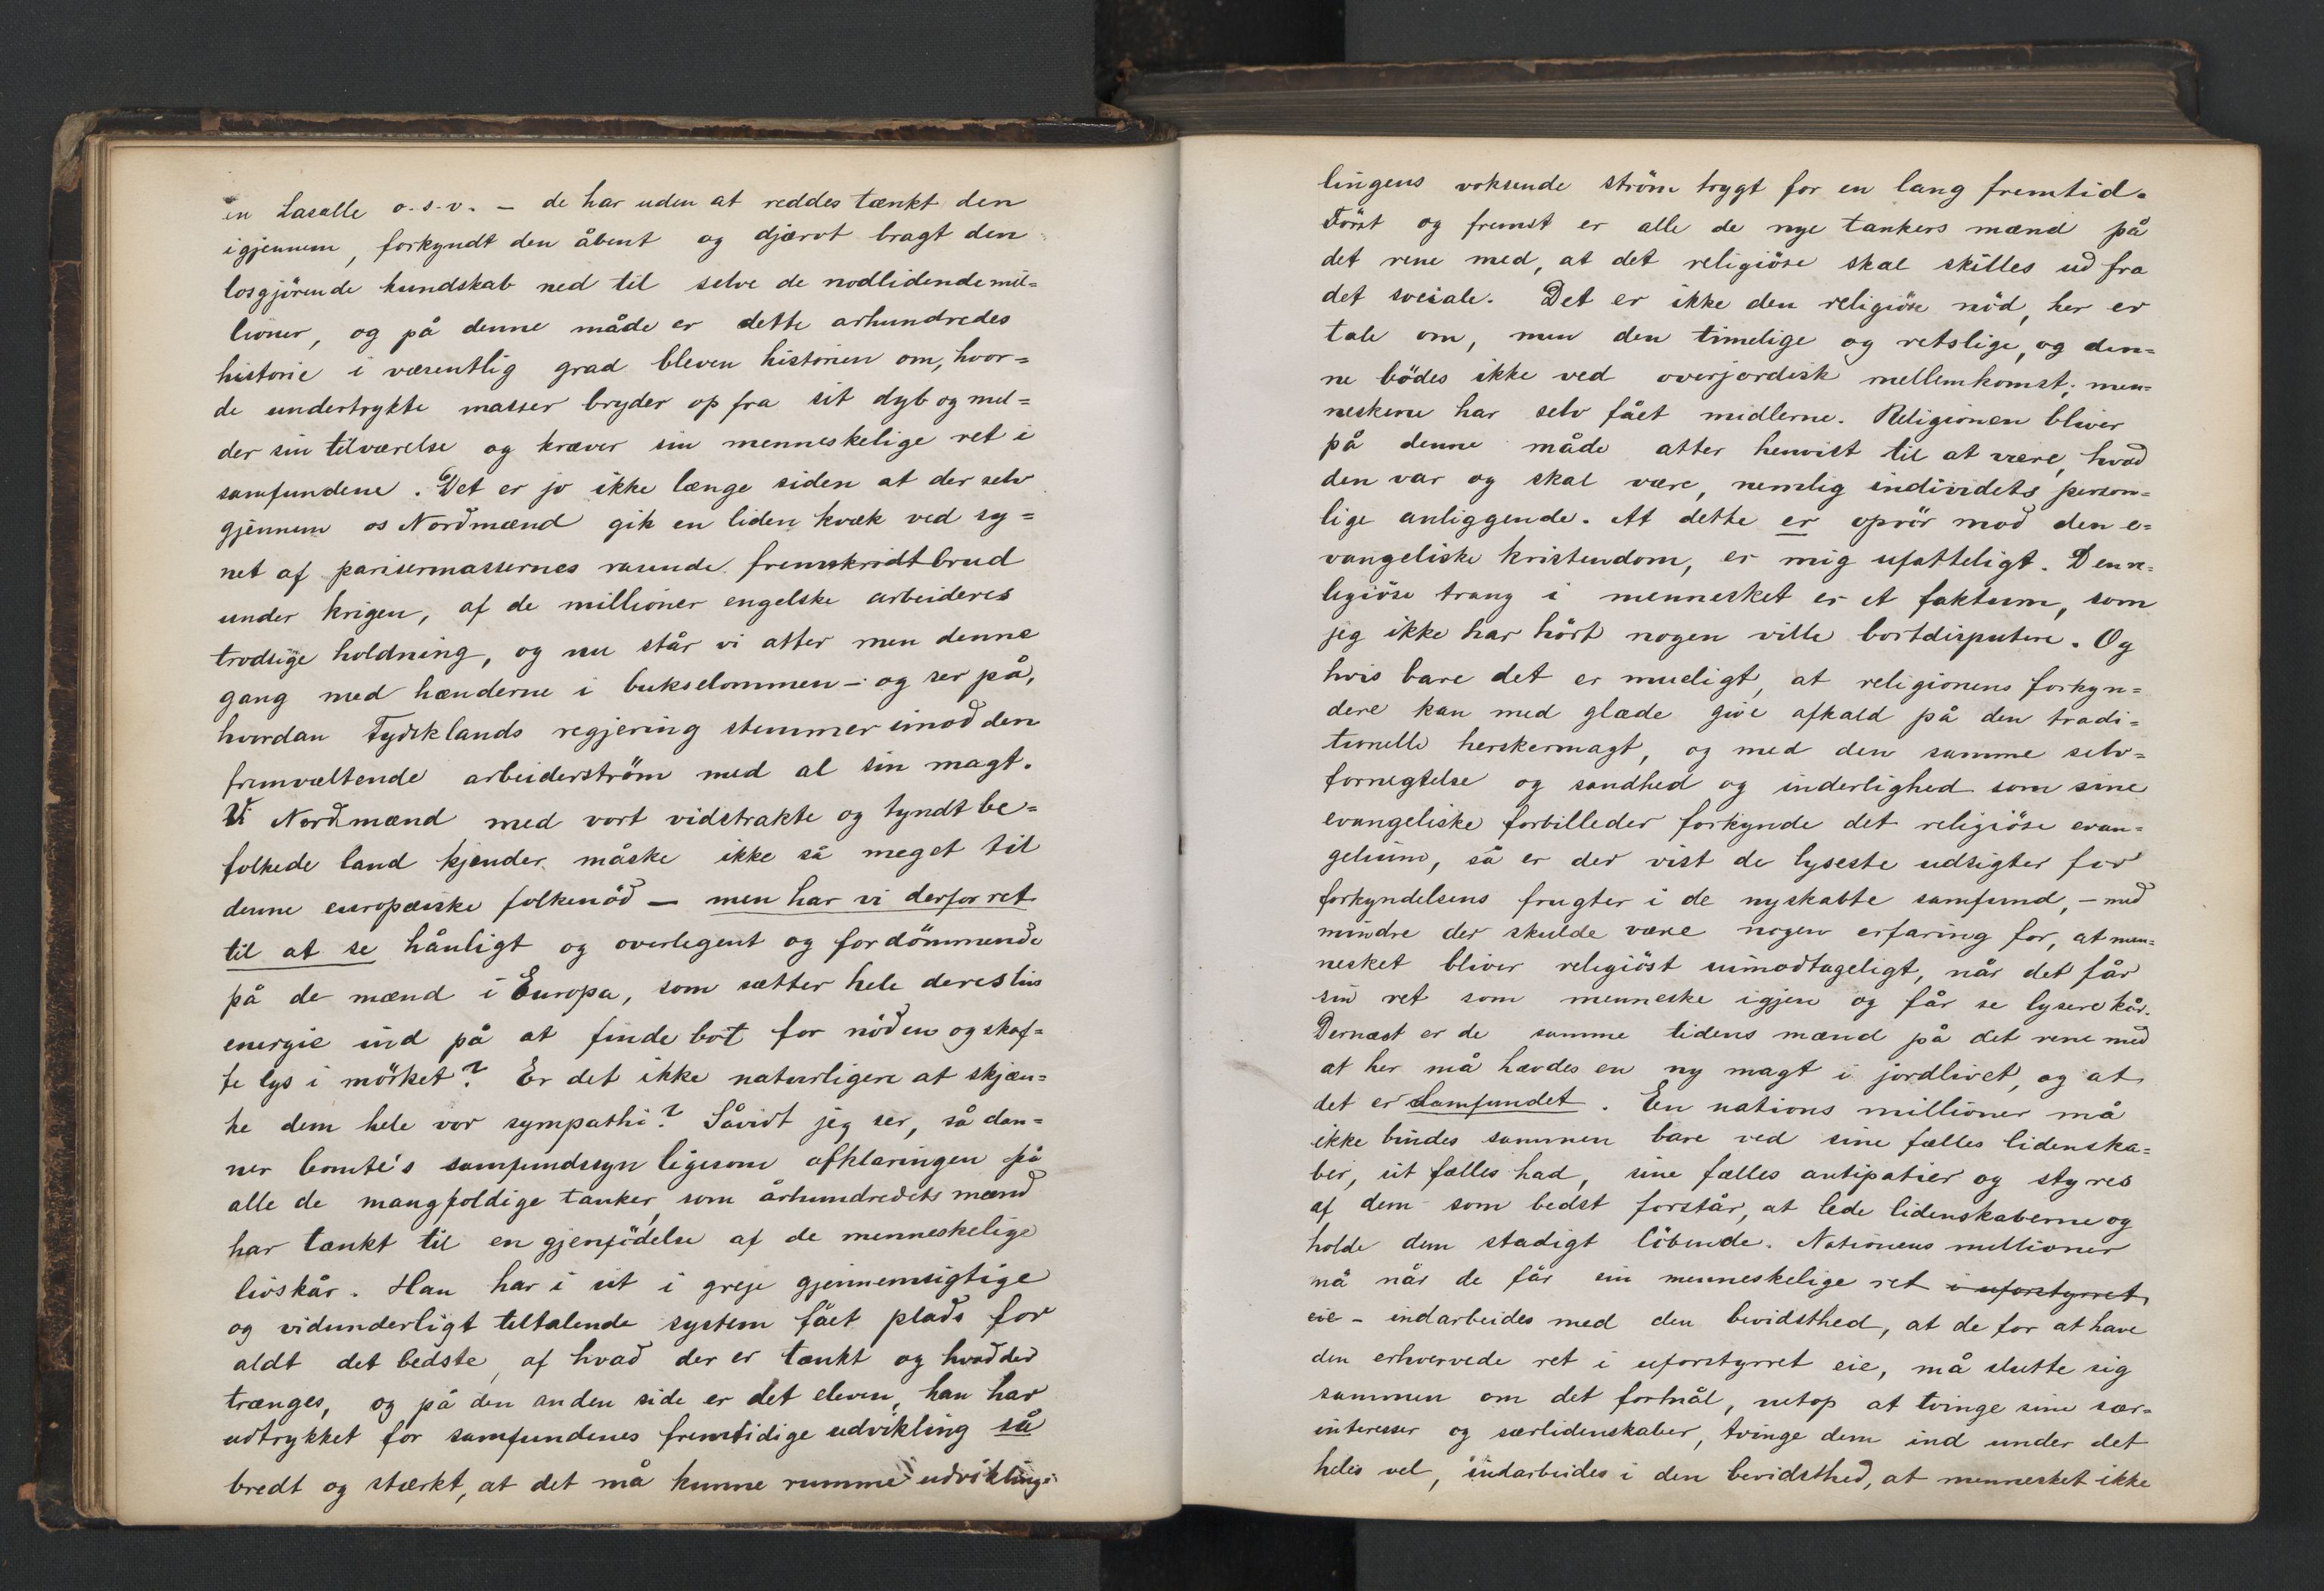 en Lasalle o.s.v. – de har uden at reddes tænkt den
igjennem, forkyndt den åbent og djærvt bragt den
losgjörende kundskab ned til selve de nodlidende mil=
lioner, og på denne måde er dette arhundredes
historie i væsentlig grad bleven historien om, hvor=
de undertrykte masser bryder op fra sit dyb og mel=
der sin tilværelse og kræver sin menneskelige ret i
samfundene. Det er jo ikke længe siden at der selv
gjennem os Nordmænd gik en liden kvæk ved sy=
net af parisermassernes rasende fremskridtbrud
under krigen, af de millioner engelske arbeideres
trodsige holdning, og nu står vi atter men denne
gang med hænderne i bukselommen – og ser på,
hvordan Tydsklands regjering stemmer imod den
fremvæltende arbeiderström med al sin magt.
Vi Nordmænd med vort vidstrakte og tyndt be=
folkede land kjender måske ikke så meget til
denne europæiske folkenöd – men har vi derfor ret
til at se hånligt og overlegent og fordömmende
på de mænd i Europa, som sætter hele deres livs
energie ind på at finde bot for nöden og skaf=
fe lys i mörket? Er det ikke naturligere at skjæn=
ke dem hele vor sympathi? Såvidt jeg ser, så dan=
ner Comte's samfundssyn ligesom afklaringen på
alle de mangfoldige tanker, som århundredets mænd
har tænkt til en gjenfödelse af de menneskelige
livskår. Han har i sit i greje gjennemsigtige
og vidunderligt tiltalende system fået plads for
aldt det bedste, af hvad der er tænkt og hvad der
trænges, og på den anden side er det eleven, han har
udtrykket for samfundenes fremtidige udvikling så
bredt og stærkt, at det må kunne rumme udviklings
lingens voksende ström trygt for en lang fremtid.
Först og fremst er alle de nye tankers mænd på
det rene med, at det religiöse skal skilles ud fra
det sociale. Det er ikke den religiöse nöd, her er
tale om, men den timelige og retslige, og den=
ne bödes ikke ved overjordisk mellemkomst; men=
neskene har selv fået midlerne. Religionen bliver
på denne måde atter henvist til at være, hvad
den var og skal være, nemlig individets person=
lige anliggende. At dette er oprör mod den e=
vangeliske kristendom, er mig ufatteligt. Den re=
ligiöse trang i mennesket er et faktum, som
jeg ikke har hört nogen ville bortdisputere. Og
hvis bare det er mueligt, at religionens forkyn=
dere kan med glæde give afkald på den tradi=
tionelle herskermagt, og med den samme selv=
fornegtelse og sandhed og inderlighed som sine
evangeliske forbilleder forkynde det religiöse evan=
gelium, så er der vist de lyseste udsigter for
forkyndelsens frugter i de nyskabte samfund, – med
mindre der skulde være nogen erfaring for, at men=
nesket bliver religiöst uimodtageligt, når det får
sin ret som menneske igjen og får se lysere kår.
Dernæst er de samme tidens mænd på det rene med
at her må hævdes en ny magt i jordlivet, og at
det er Samfundet. En nations millioner må
ikke bindes sammen bare ved sine fælles lidenska=
ber, sit fælles had, sine fælles antipatier og styres
af dem som bedst forstår, at lede lidenskaberne og
holde dem stadigt löbende. Nationens millioner
må når de får sin menneskelige ret i uforstyrret
eie – indarbeides med den bevidsthed, at de for at have
den erhvervede ret i uforstyrret eie, må slutte sig
sammen om det formål, netop at tvinge sine sær=
interesser og særlidenskaber, tvinge dem ind under det
heles vel, indarbeides i den bevidsthed, at mennesket ikke